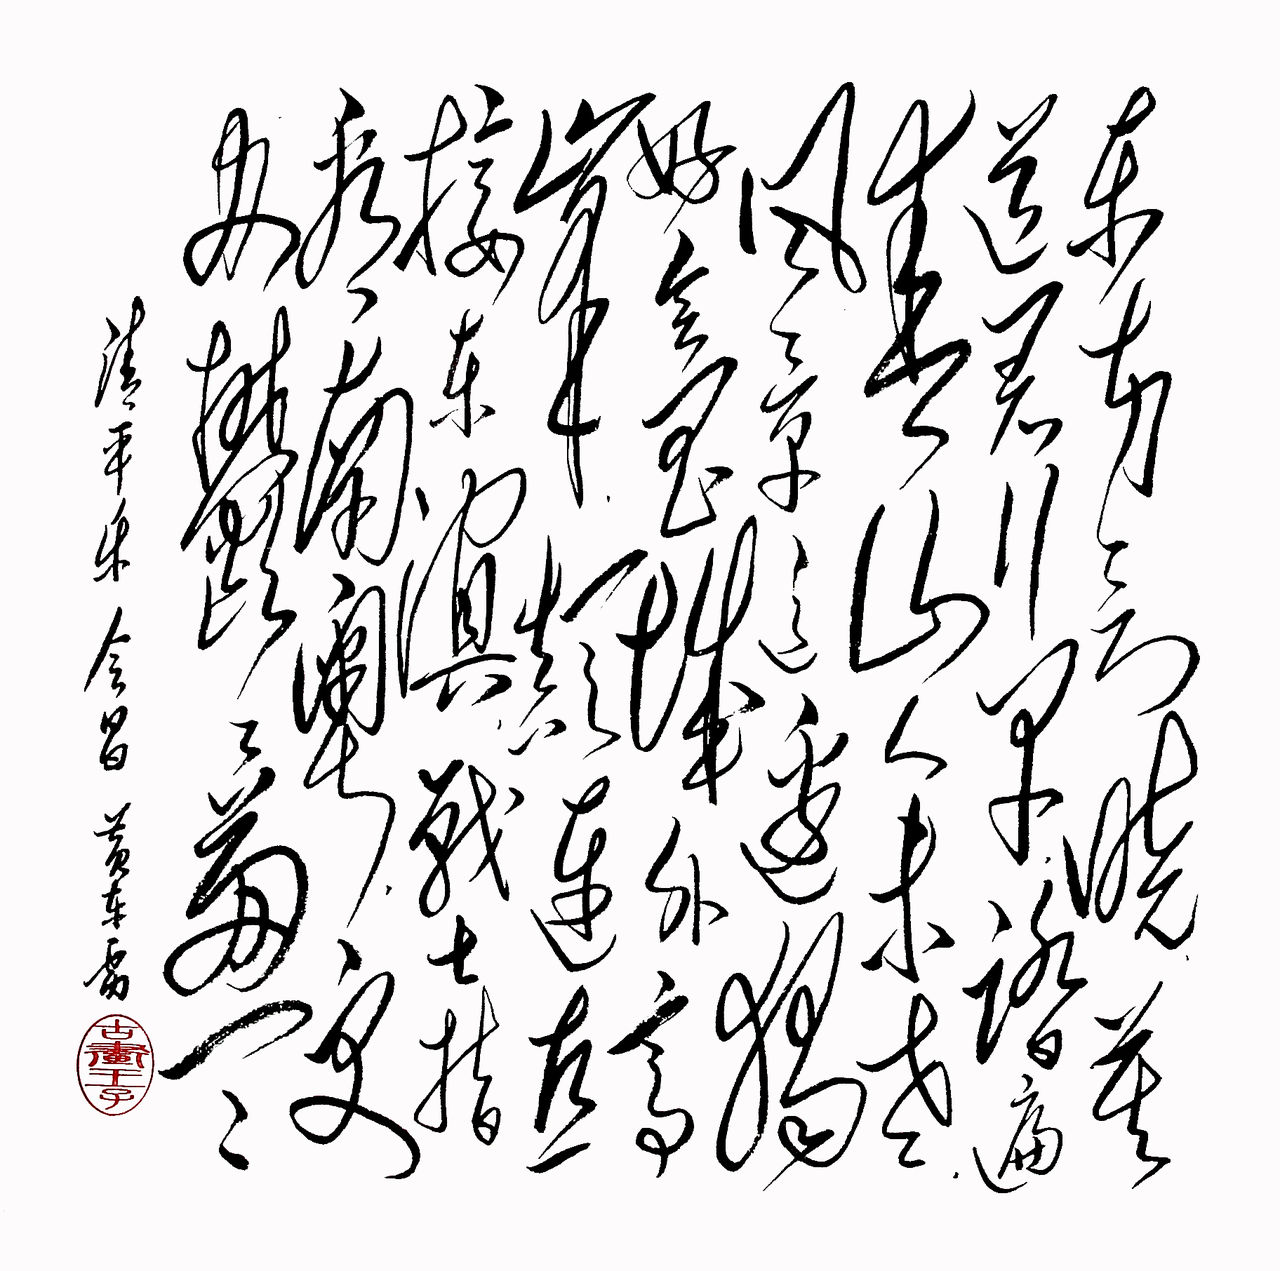 东方欲晓莫
道君行早踏遍
青山人未老
风景这边独
好会昌城外高
峰颠连直
接东溟战士指
看南粤更
加鬱鬱葱葱
清平乐 会昌 黄东雷